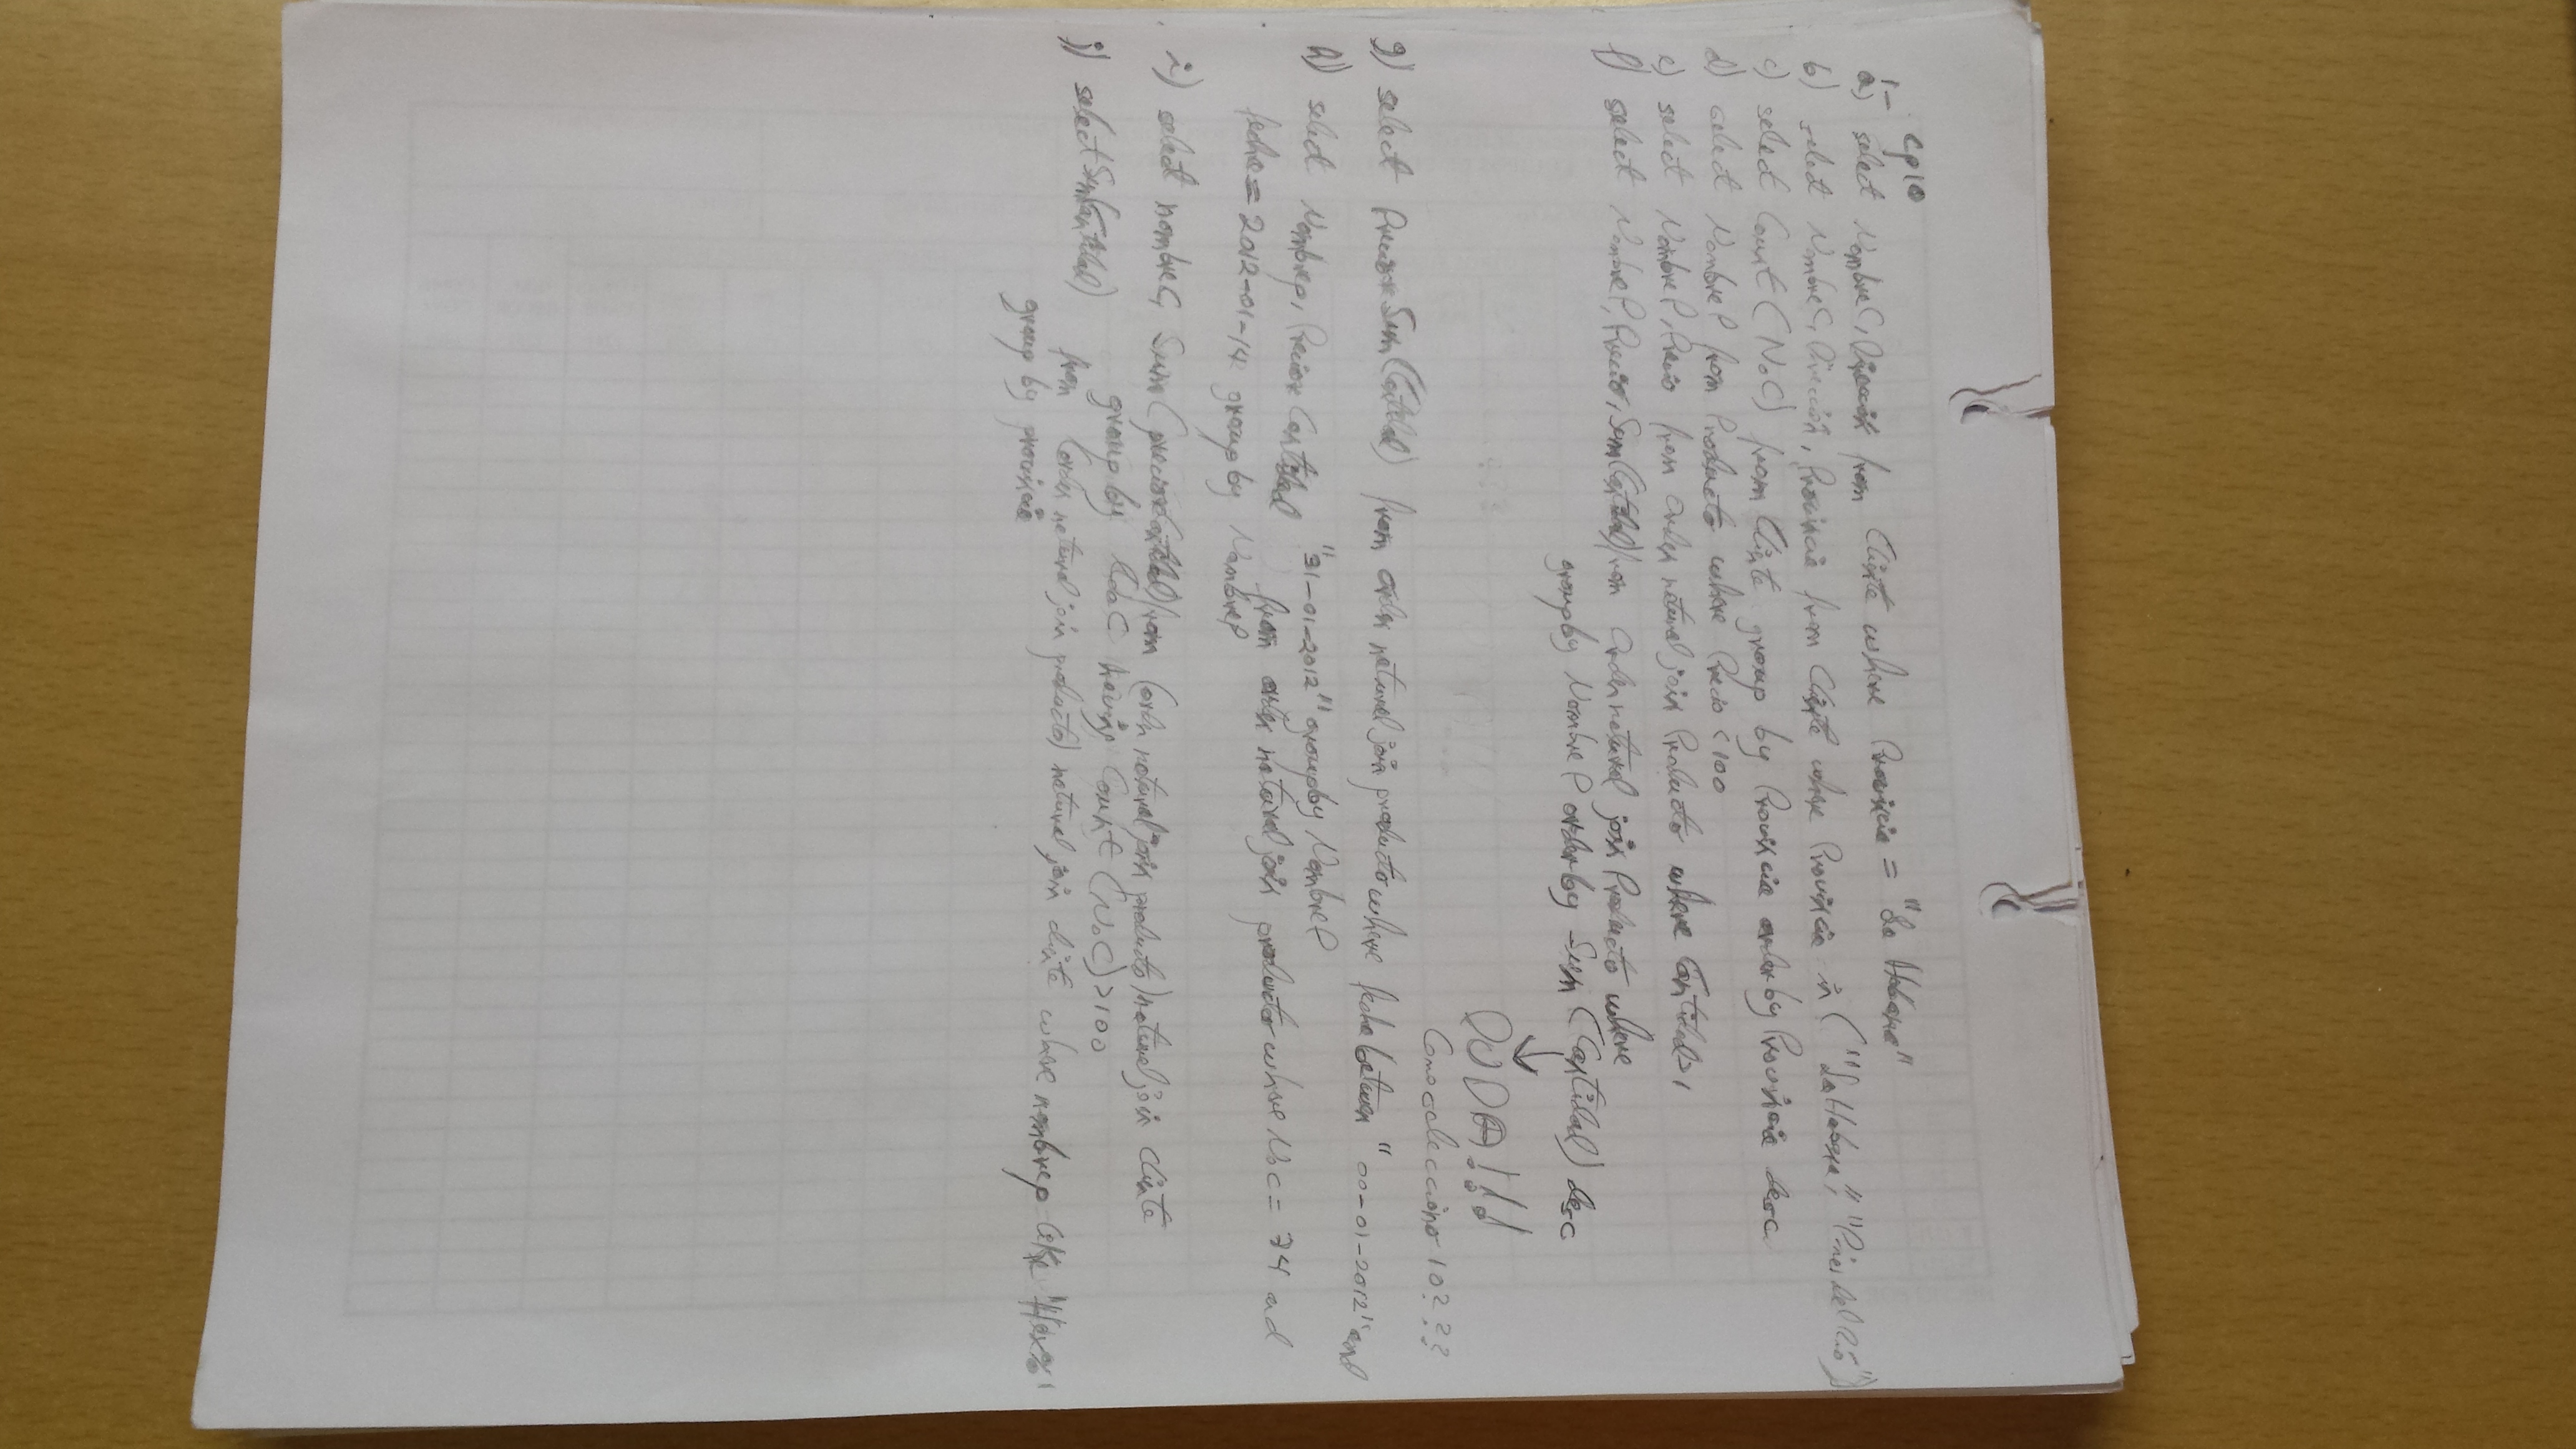 cp10
1-
a) select NombreC, Dirección from Cliente where Provincia = "La Habana"
b) select NombreC, Dirección, Provincia from Cliente where Provincia in ("La Habana", "Pinar del Río")
c) select Count (NoC) from Cliente group by Provincia order by Provincia desc
d) select NombreP from Producto where Precio < 100
e) select NombreP, Precio from Orden natural join Producto where Cantidad > 1
f) select NombreP, Precio, Sum(Cantidad) from Orden natural join Producto where
group by NombreP order by Sum (Cantidad) desc
DUDA!!!
Como selecciono 10? ??
g) select Precio*Sum(Cantidad) from Orden natural join producto where fecha between "00-01-2012" and
"31-01-2012" group by NombreP
h) select NombreP, Precio* Cantidad from orden natural join producto where NoC = 74 and
fecha = 2012-01-14 group by NombreP
i) select nombreC, Sum (precio*Cantidad) from (orden natural join producto) natural join Cliente
group by NoC having Count (NoC) > 100
j) select Sum(Cantidad) from (orden natural join producto) natural join cliente where nombrep like "Hex%"
group by provincia